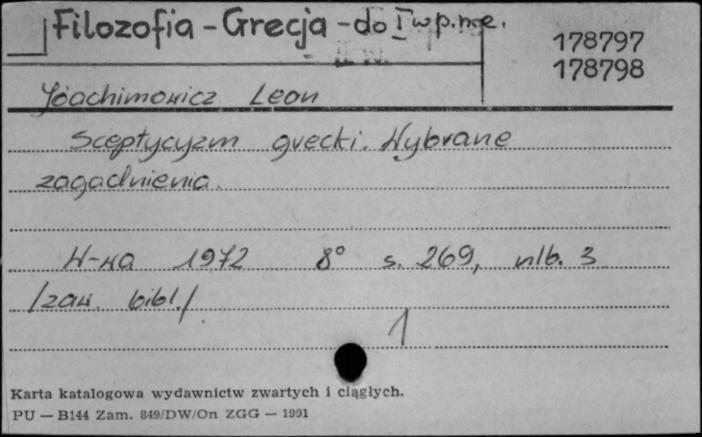 Filozofia - Grecja - do I w p.n.e.
178797
178798
Joachimowicz Leon
Sceptycyzm grecki. Wybrane
zagadnienia.
W-wa 1972 8° s. 269, nlb. 3
/zaw. bibl./
1
Karta katalogowa wydawnictw zwartych i ciągłych.
PU — B144 Zam. 849/DW/On ZGG — 1991